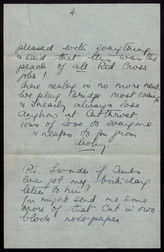 4.
pleased with everything
& said that this was the
peach of all Red Cross
jobs!
There really is no more news
We play bridge most evenings
& I nearly always lose
Anyhow at Cutthroat
Tons of love to everyone
& heaps to you from
Molly
P.S. Wonder if Aunt
got my birthday
letter to him?
You might send me some
more of that Cut in two
block note-paper